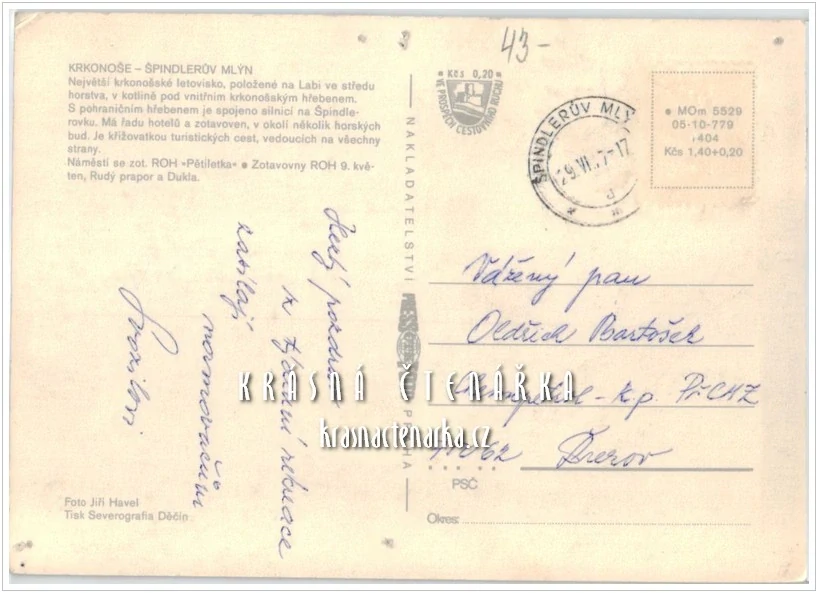 43-
KRKONOŠE – ŠPINDLERŮV MLÝN
Největší krkonošské letovisko, položené na Labi ve středu
horstva, v kotlině pod vnitřním krkonošským hřebenem.
S pohraničním hřebenem je spojeno silnicí na Špindle-
rovku. Má řadu hotelů a zotavoven, v okolí několik horských
bud. Je křižovatkou turistických cest, vedoucích na všechny
strany.
Náměstí se zot. ROH »Pětiletka« ● Zotavovny ROH 9. kvě-
ten, Rudý prapor a Dukla.
● Kčs 0,20 ●
VE PROSPĚCH CESTOVNÍHO RUCHU
ŠPINDLERŮV MLÝ
29.VI.
● MOm 5529
05-10-779
404
Kčs 1,40+0,20
NAKLADATELSTVÍ
PRAHA
Hezký pozdrav
z týdenní rekreace
zasílají
Vážený pan
Oldřich Bartošek
k.p. PřCHZ
Přerov
PSČ
Okres:
KRÁSNÁ ČTENÁŘKA
krasnactenarka.cz
Foto Jiří Havel
Tisk Severografia Děčín